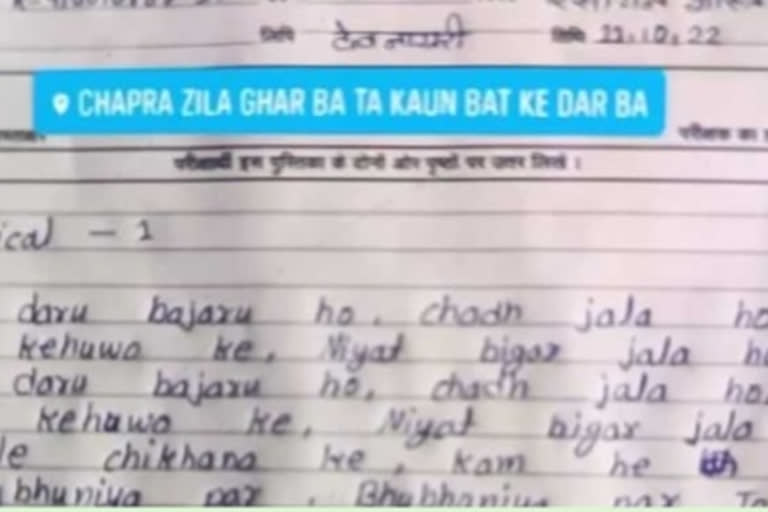 तिथि 11.10.22
CHAPRA ZILA GHAR BA TA KAUN BAT KE DAR BA
परीक्षार्थी इस पुस्तिका के दोनों ओर पृष्ठों पर उत्तर लिखें ।
ical - 1
daru bajaru ho, chadh jala ho
kehuwa ke, Niyat bigar jala h
daru bajaru ho, chadh jala ho,
kehuwa ke, Niyat bigar jala
le chikhana ke, kam he
bhuniya par, Bhubhaniya par